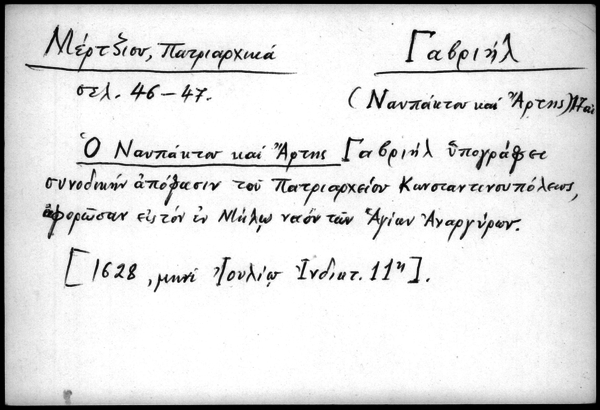 Μέρτζιου, Πατριαρχικά
Γαβριήλ
σελ. 46-47.
(Ναυπάκτου καὶ Ἄρτης)
Ὁ Ναυπάκτου καὶ Ἄρτης Γαβριήλ ὑπογράφει
συνοδικήν ἀπόφασιν τοῦ Πατριαρχείου Κωνσταντινουπόλεως,
ἀφορῶσαν εἰς τόν ἐν Μήλῳ ναόν τῶν Ἁγίων Ἀναργύρων.
[1628, μηνί Ἰουλίῳ Ἰνδικτ. 11η].